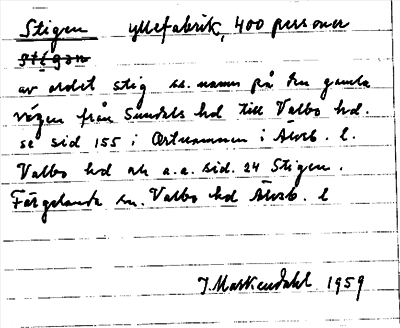 Stigen yllefabrik, 400 personer
stigen
av ordet stig ss. namn på den gamla
vägen från Sundals hd till Valbo hd.
se sid 155 i Ortnamnen i Älvsb. l.
Valbo hd ok a.a. sid. 24 Stigen.
Färgelanda sn. Valbo hd Älvsb. l
1959